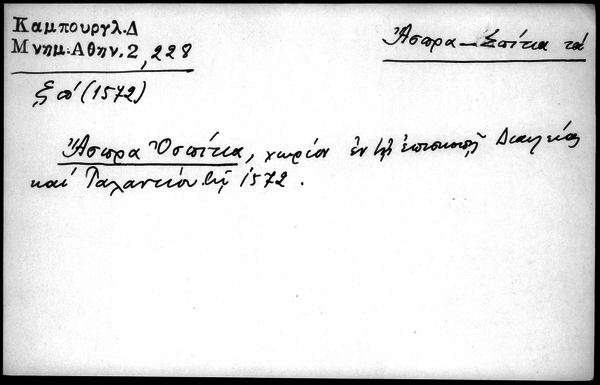 Καμπουργλ.Δ
Μνημ.Αθην.2,228
Ἄσπρα – Σπίτια τά
(1572)
Ἄσπρα Ὀσπίτια, χωρίον ἐν τῇ ἐπισκοπῇ Διαυλείας
καί Ταλαντίου τῷ 1572.